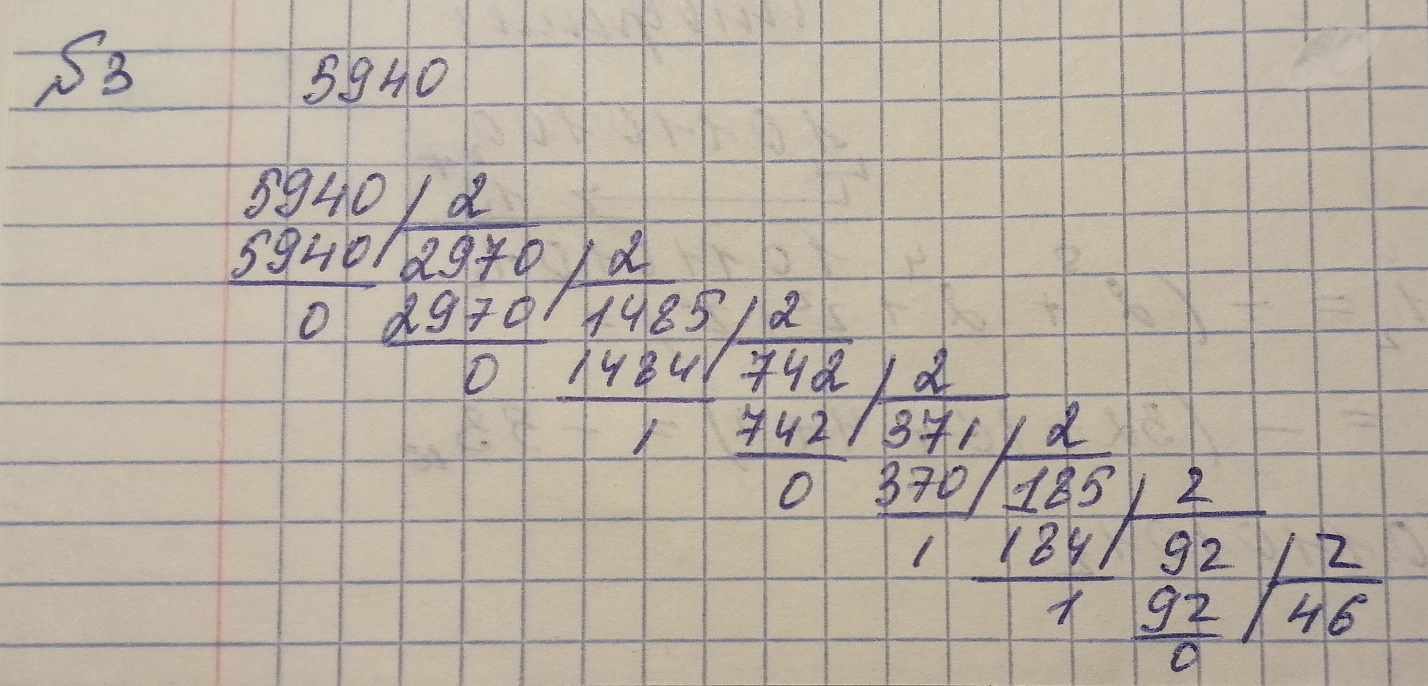 №3 5940
5940 2
5940 2970 2
0 2970 1485 2
0 1484 742 2
1 742 371 2
0 370 185 2
1 184 92 2
1 92 46
0